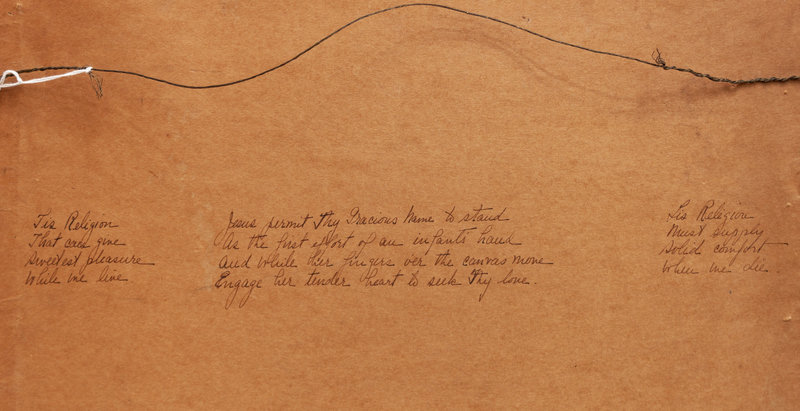 Tis Religion
That can give
Sweetest pleasure
While we live
Jesus permit Thy Gracious Name to stand
As the first effort of an infants hand
and while her fingers oer the canvas move
Engage her tender heart to seek Thy love.
Tis Religion
Must supply
Solid comfort
When we die.